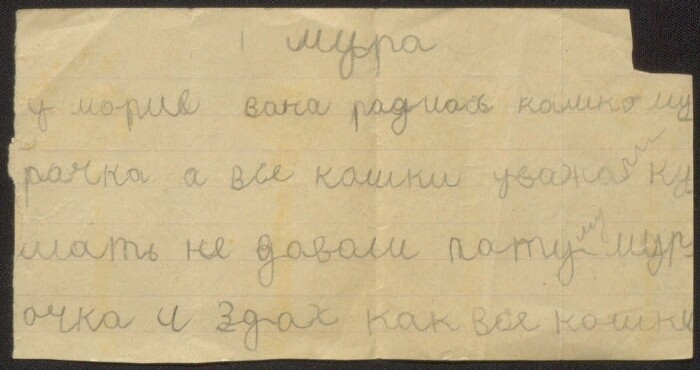 мура
у марив вана радиась кашка му
рачка а все кошки уважали ку
шать не довали патуму мур
очка и Здах как все кошки